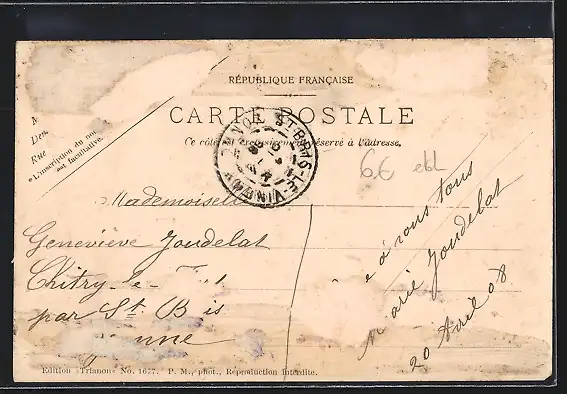 RÉPUBLIQUE FRANÇAISE
CARTE POSTALE
Ce côté est exclusivement réservé à l'adresse.
Rue
« L'inscription du nom
est facultative.
Mademoiselle
Geneviève Joudelat
Chitry-le-
par St B is
nne
à vous tous
Marie Joudelat
20 Avril 08
66 ebl
Edition «Trianon» No. 1677. P. M., phot., Reproduction interdite.